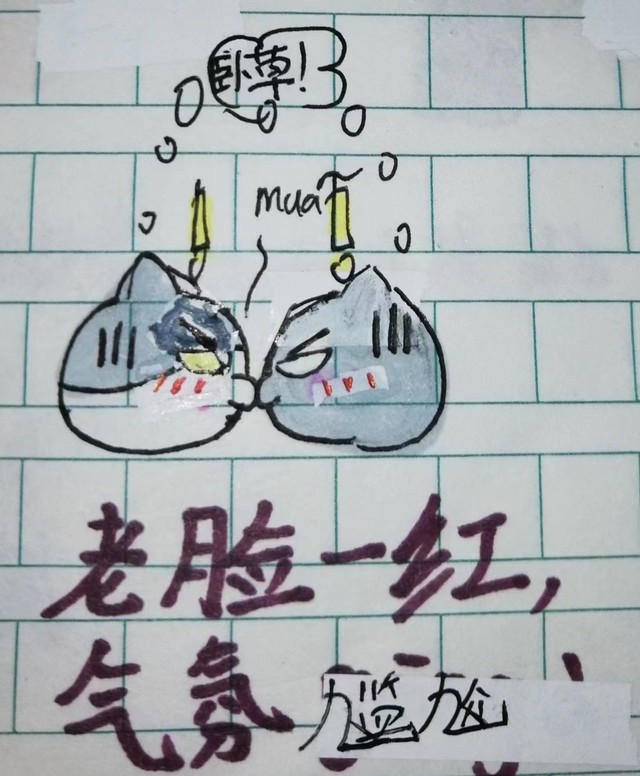 卧草!
mua~
老脸一红,
气氛尴尬